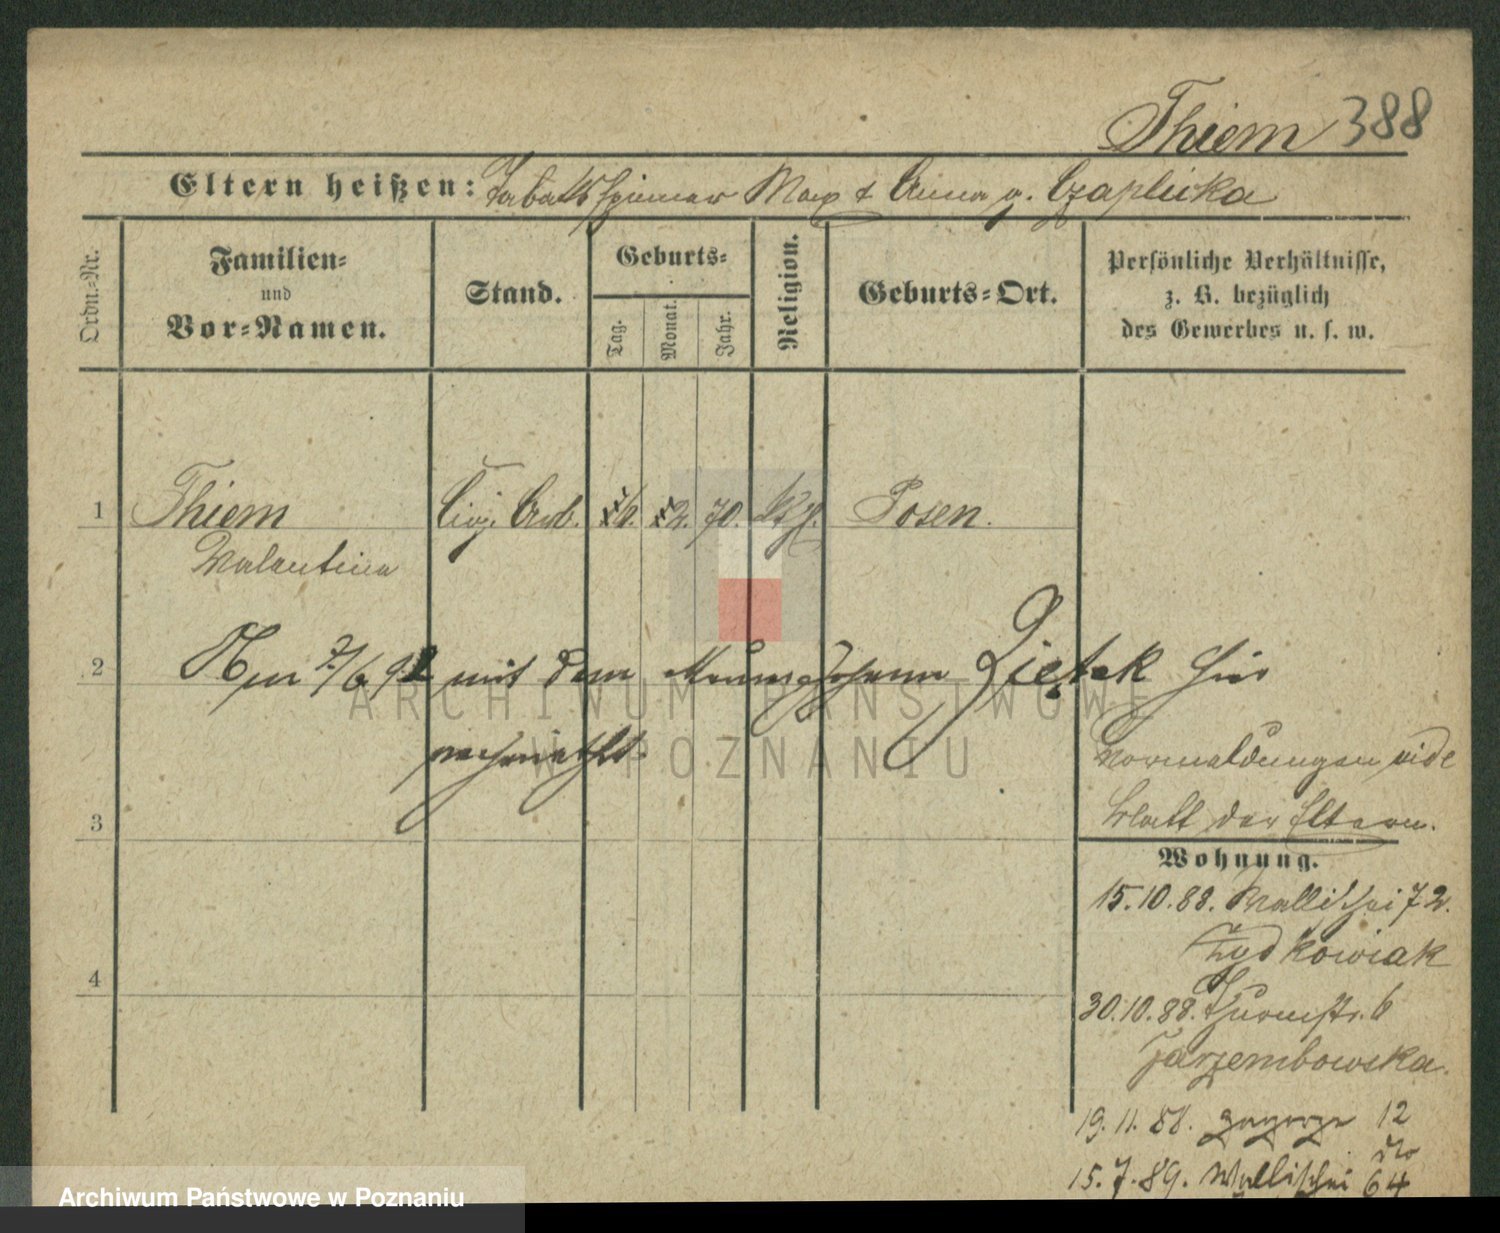 Thiem 388
Eltern heißen: Tabakspinner Max & Anna g. Czaplicka
Ordn.-Nr.
Familien-
und
Vor-Namen.
Stand.
Geburts-
Tag.
Monat.
Jahr.
Religion.
Geburts-Ort.
Persönliche Verhältnisse,
z. B. bezüglich
des Gewerbes u. s. w.
1 Thiem Cig. Arb. 2. 70. Posen.
Valentina
2 7/6 92 mit dem Johann Ziętek hier
verehelicht
Vormeldungen vide
3 Blatt der Eltern.
Wohnung.
15.10.88. Wallischei 72.
Zydkowiak
4
30.10.88. Thurmstr. 6
Jarzembowska.
19.11.88. Zagorze 12
do
15.7.89. Wallischei 64
ARCHIWUM PAŃSTWOWE
W POZNANIU
Archiwum Państwowe w Poznaniu